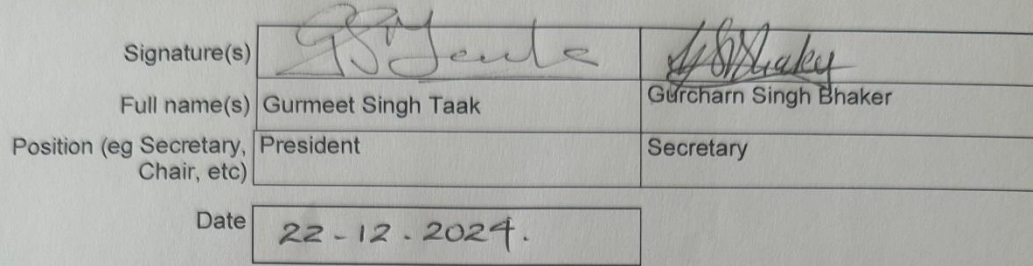 Signature(s)
Full name(s) Gurmeet Singh Taak Gurcharn Singh Bhaker
Position (eg Secretary, President Secretary
Chair, etc)
Date 22-12.2024.